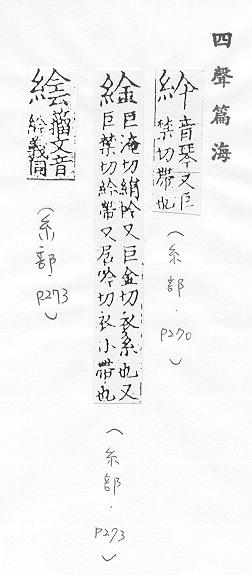 四聲篇海
紟 音琴又巨
禁切帶也
(糸部.P270)
䋮 巨淹切絹又巨金切衣系也又
巨禁切紟帶又居吟切衣小帶也
(糸部.P273)
絵 籀文音
紟義同
(糸部P273)